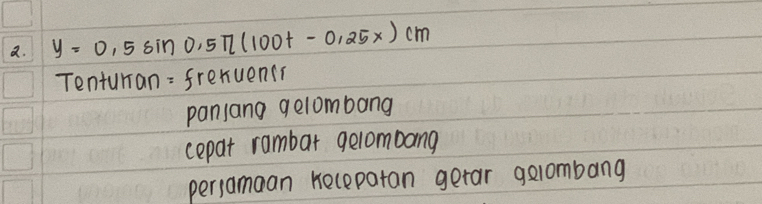 2. y = 0,5 sin 0,5π (100t - 0,25x) cm
Tentukan = frekuensi
panjang gelombang
cepat rambat gelombang
persamaan kecepatan getar gelombang